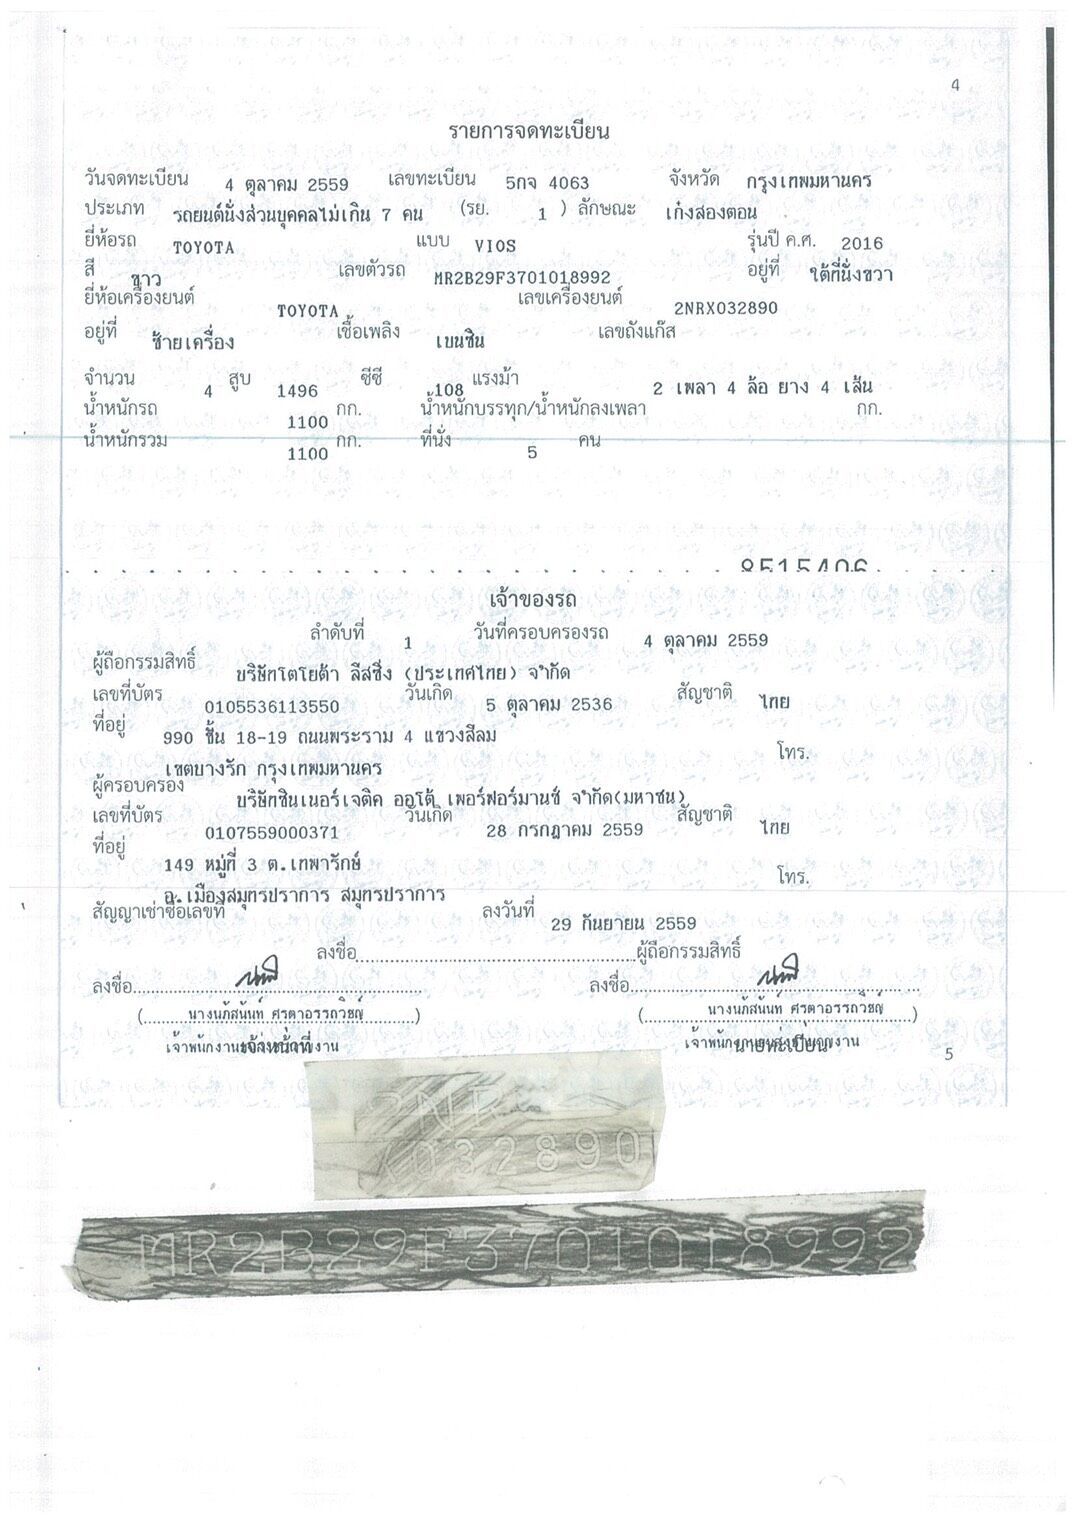 4
รายการจดทะเบียน
วันจดทะเบียน 4 ตุลาคม 2559 เลขทะเบียน 5กจ 4063 จังหวัด กรุงเทพมหานคร
ประเภท รถยนต์นั่งส่วนบุคคลไม่เกิน 7 คน (รย. 1 ) ลักษณะ เก๋งสองตอน
ยี่ห้อรถ TOYOTA แบบ VIOS รุ่นปี ค.ศ. 2016
สี ขาว เลขตัวรถ MR2B29F3701018992 อยู่ที่ ใต้ที่นั่งขวา
ยี่ห้อเครื่องยนต์ TOYOTA เลขเครื่องยนต์ 2NRX032890
อยู่ที่ ซ้ายเครื่อง เชื้อเพลิง เบนซิน เลขถังแก๊ส
จำนวน 4 สูบ 1496 ซีซี 108 แรงม้า 2 เพลา 4 ล้อ ยาง 4 เส้น
น้ำหนักรถ 1100 กก. น้ำหนักบรรทุก/น้ำหนักลงเพลา กก.
น้ำหนักรวม 1100 กก. ที่นั่ง 5 คน
8515406
เจ้าของรถ
ลำดับที่ 1 วันที่ครอบครองรถ 4 ตุลาคม 2559
ผู้ถือกรรมสิทธิ์ บริษัทโตโยต้า ลีสซิ่ง (ประเทศไทย) จำกัด
เลขที่บัตร 0105536113550 วันเกิด 5 ตุลาคม 2536 สัญชาติ ไทย
ที่อยู่ 990 ชั้น 18-19 ถนนพระราม 4 แขวงสีลม โทร.
เขตบางรัก กรุงเทพมหานคร
ผู้ครอบครอง บริษัทซินเนอร์เจติค ออโต้ เพอร์ฟอร์มานซ์ จำกัด(มหาชน)
เลขที่บัตร 0107559000371 วันเกิด 28 กรกฎาคม 2559 สัญชาติ ไทย
ที่อยู่ 149 หมู่ที่ 3 ต.เทพารักษ์ โทร.
อ.เมืองสมุทรปราการ สมุทรปราการ
สัญญาเช่าซื้อเลขที่ ลงวันที่ 29 กันยายน 2559
ลงชื่อ ผู้ถือกรรมสิทธิ์
ลงชื่อ ลงชื่อ
(นางนภัสนันท์ ศรตาอรรถวิชญ์) (นางนภัสนันท์ ศรตาอรรถวิชญ์)
เจ้าหน้าที่ นายทะเบียน
5
2NR
X032890
MR2B29F3701018992